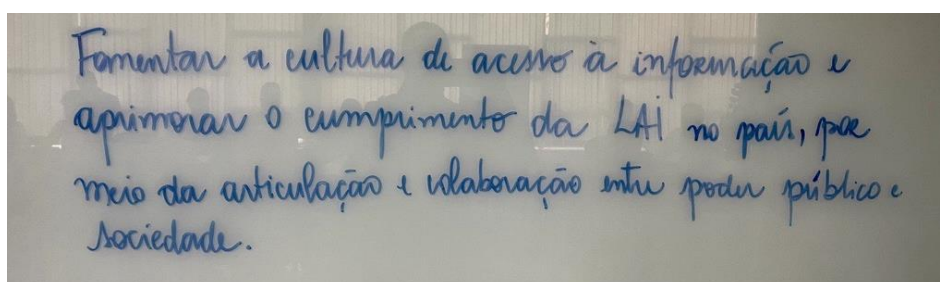 Fomentar a cultura de acesso à informação e
aprimorar o cumprimento da LAI no país, por
meio da articulação e colaboração entre poder público e
sociedade.